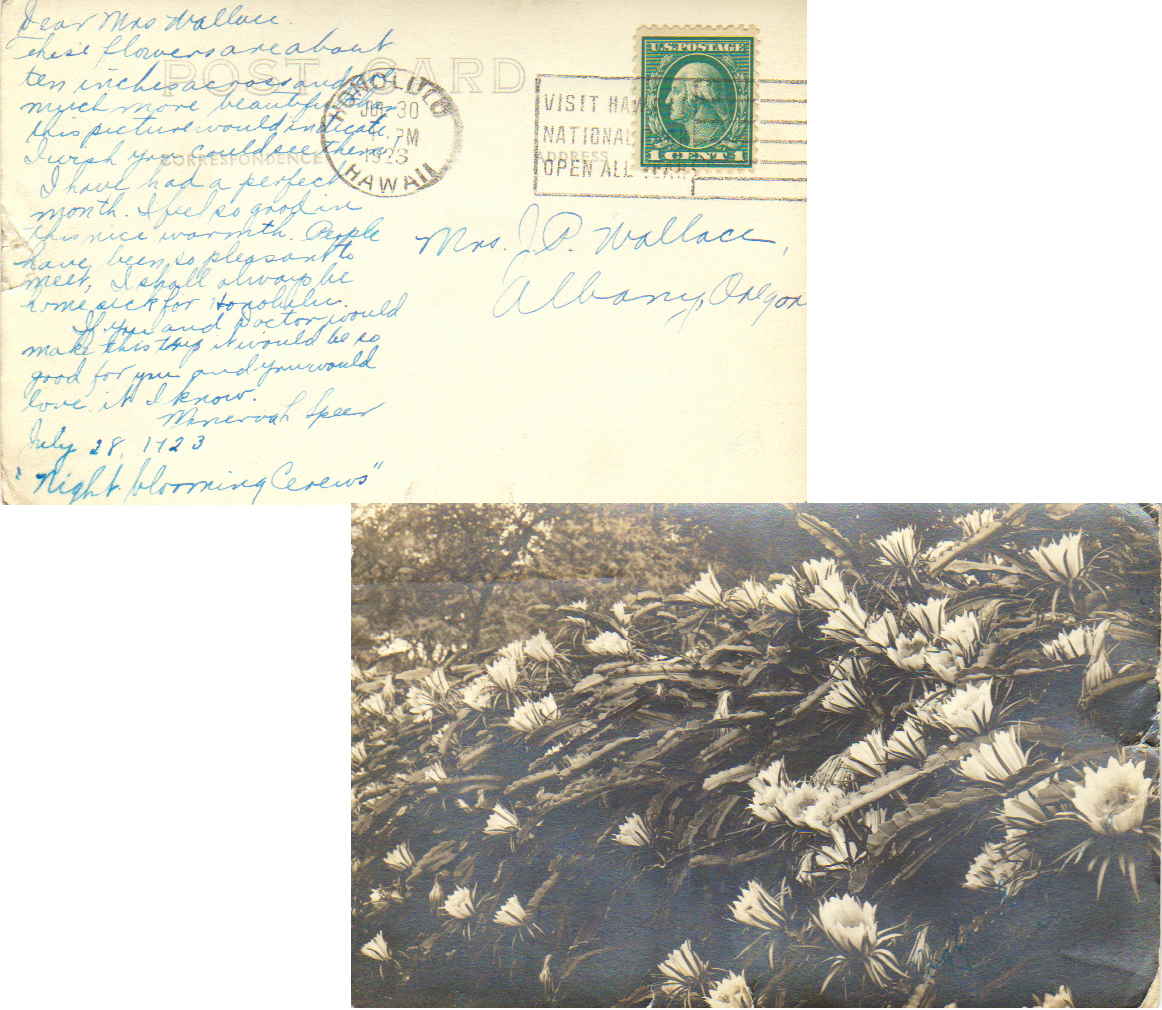 Dear Mrs Wallace.
these flowers are about
ten inches across and
much more beautiful than
this picture would indicate,
I wish you could see them.
I have had a perfect
month. I feel so good in
this nice warmth. People
have been so pleasant to
meet, I shall always be
home sick for Honolulu.
If you and Doctor would
make this trip it would be so
good for you and you would
love it I know.
Minervah Speer
July 28, 1923
"Night blooming Cereus"
POST CARD
CORRESPONDENCE
ADDRESS
HONOLULU
30
PM
1923
HAWAII
VISIT
NATIONAL
OPEN ALL YEAR
U.S. POSTAGE
1 CENT 1
Mrs. J. P. Wallace,
Albany, Oregon